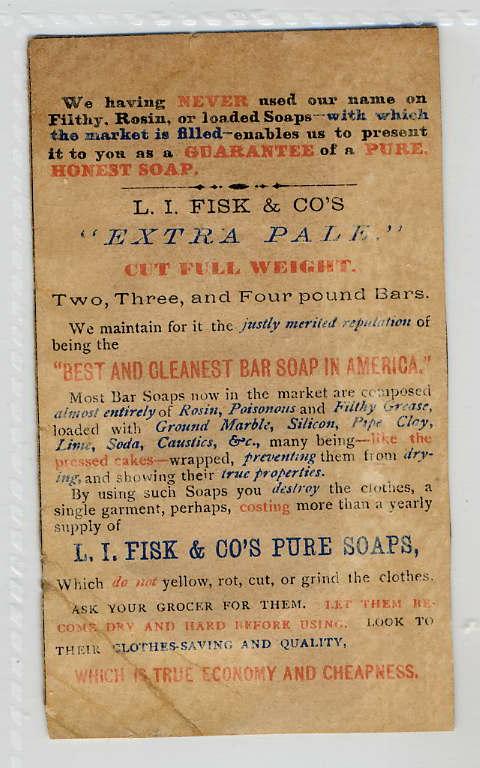 We having NEVER used our name on
Filthy, Rosin, or loaded Soaps—with which
the market is filled—enables us to present
it to you as a GUARANTEE of a PURE,
HONEST SOAP.
L. I. FISK & CO'S
"EXTRA PALE."
CUT FULL WEIGHT.
Two, Three, and Four pound Bars.
We maintain for it the justly merited reputation of
being the
"BEST AND CLEANEST BAR SOAP IN AMERICA."
Most Bar Soaps now in the market are composed
almost entirely of Rosin, Poisonous and Filthy Grease,
loaded with Ground Marble, Silicon, Pipe Clay,
Lime, Soda, Caustics, &c., many being—like the
pressed cakes—wrapped, preventing them from dry-
ing, and showing their true properties.
By using such Soaps you destroy the clothes, a
single garment, perhaps, costing more than a yearly
supply of
L. I. FISK & CO'S PURE SOAPS,
Which do not yellow, rot, cut, or grind the clothes.
ASK YOUR GROCER FOR THEM. LET THEM BE-
COME DRY AND HARD BEFORE USING. LOOK TO
THEIR CLOTHES-SAVING AND QUALITY,
WHICH IS TRUE ECONOMY AND CHEAPNESS.